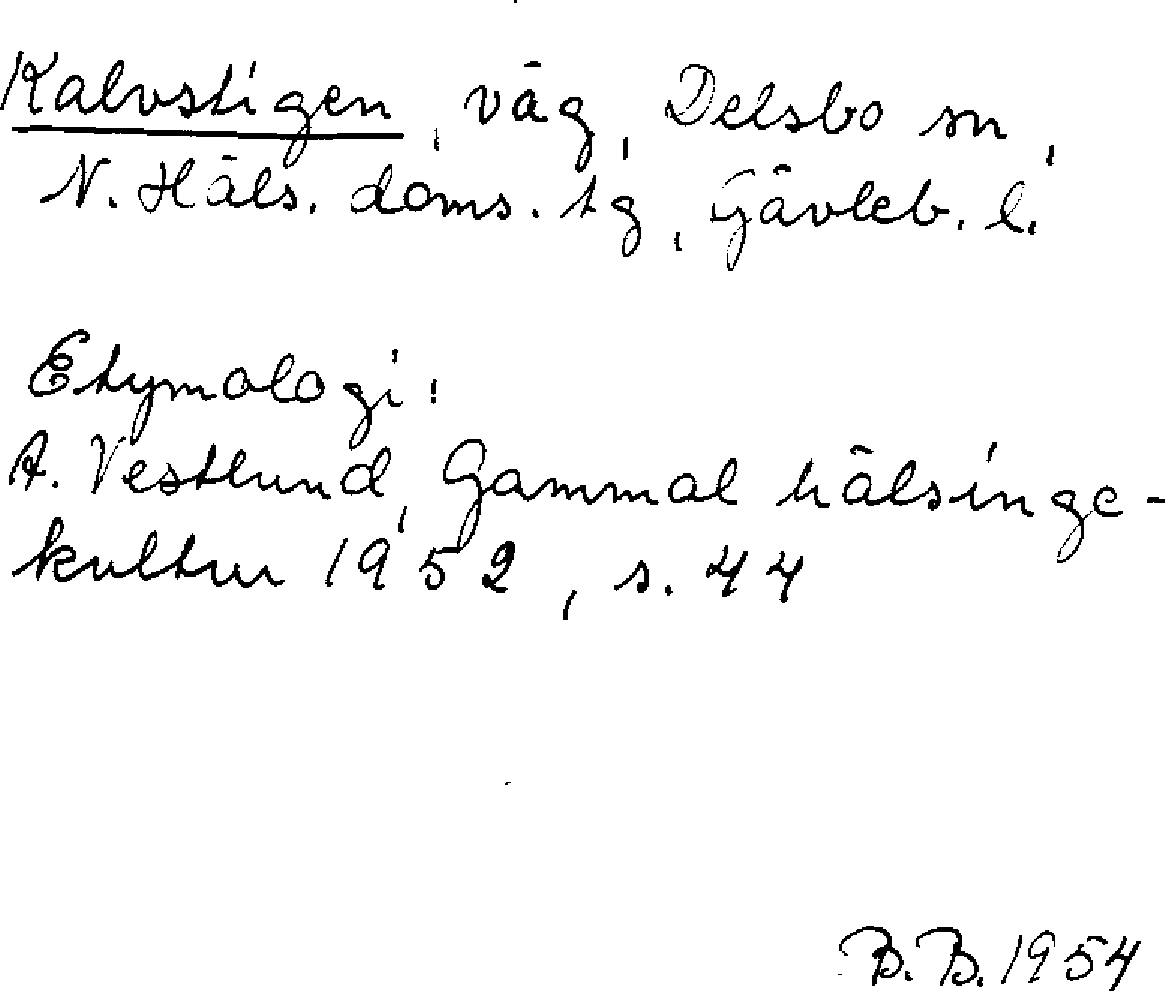 Kalvstigen, väg, Delsbo sn,
N. Häls. doms. tg, Gävleb. l.
Etymologi:
A. Vestlund, Gammal hälsinge-
kultur 1952, s. 44
B. B. 1954